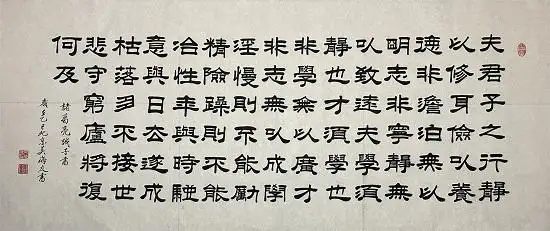 夫君子之行靜
以修身儉以養
德非澹泊無以
明志非寧靜無
以致遠夫學須
靜也才須學也
非學無以廣才
非志無以成學
淫慢則不能勵
精險躁則不能
冶性年與時馳
意與日去遂成
枯落多不接世
悲守窮廬將復
何及
諸葛亮誡子書